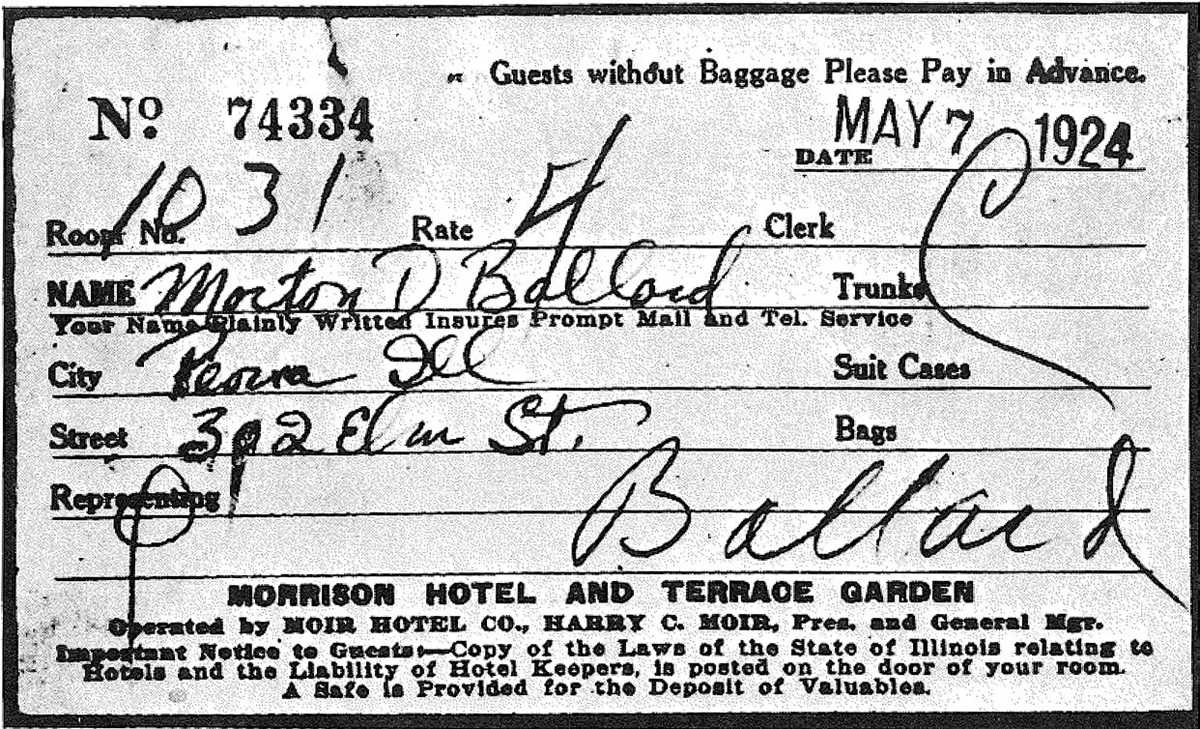 Guests without Baggage Please Pay in Advance.
No. 74334
MAY 7 1924
DATE
Room No. 1031 Rate 4 Clerk
NAME Morton D Ballard Trunks
Your Name Plainly Writted Insures Prompt Mail and Tel. Service
City Peoria Ill Suit Cases
Street 302 Elm St. Bags
Representing
Ballard
MORRISON HOTEL AND TERRACE GARDEN
Operated by MOIR HOTEL CO., HARRY C. MOIR, Pres. and General Mgr.
Important Notice to Guests:—Copy of the Laws of the State of Illinois relating to
Hotels and the Liability of Hotel Keepers, is posted on the door of your room.
A Safe is Provided for the Deposit of Valuables.